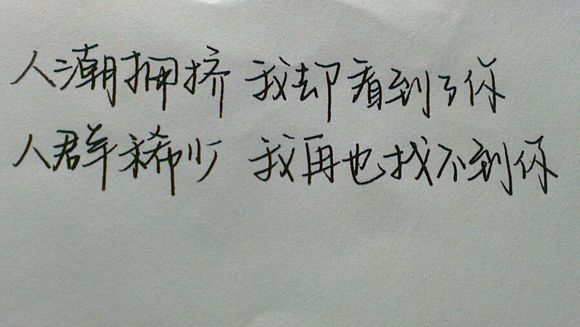 人潮拥挤 我却看到了你
人群稀少 我再也找不到你